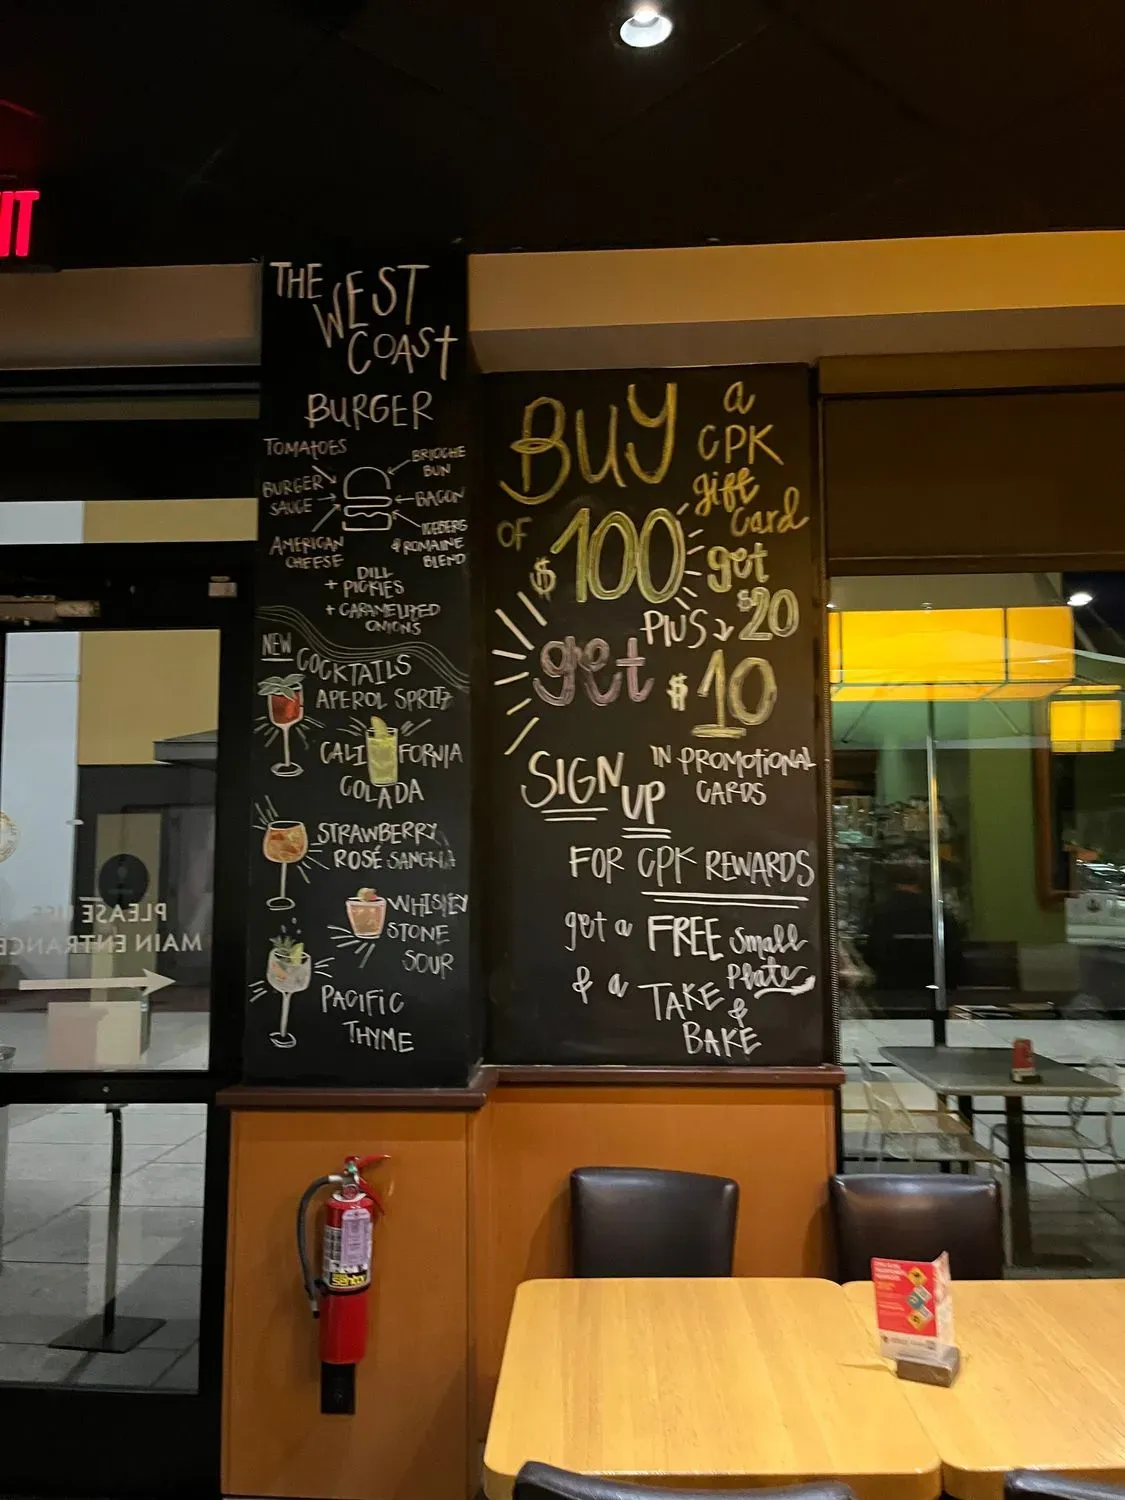 IT
THE
WEST
COAST
BURGER
TOMATOES
BRIOCHE
BUN
BURGER
SAUCE
BACON
AMERICAN
CHEESE
ICEBERG
& ROMAINE
BLEND
DILL
+ PICKLES
+ CARAMELIZED
ONIONS
NEW
COCKTAILS
APEROL SPRITZ
CALIFORNIA
COLADA
STRAWBERRY
ROSÉ SANGRIA
WHISKEY
STONE
SOUR
PACIFIC
THYME
BUY a
CPK
gift
card
OF $100 get
PLUS $20
get $10
IN PROMOTIONAL
CARDS
SIGN
UP
FOR CPK REWARDS
get a FREE small
plate
& a TAKE &
BAKE
PLEASE USE
MAIN ENTRANCE
Sentry